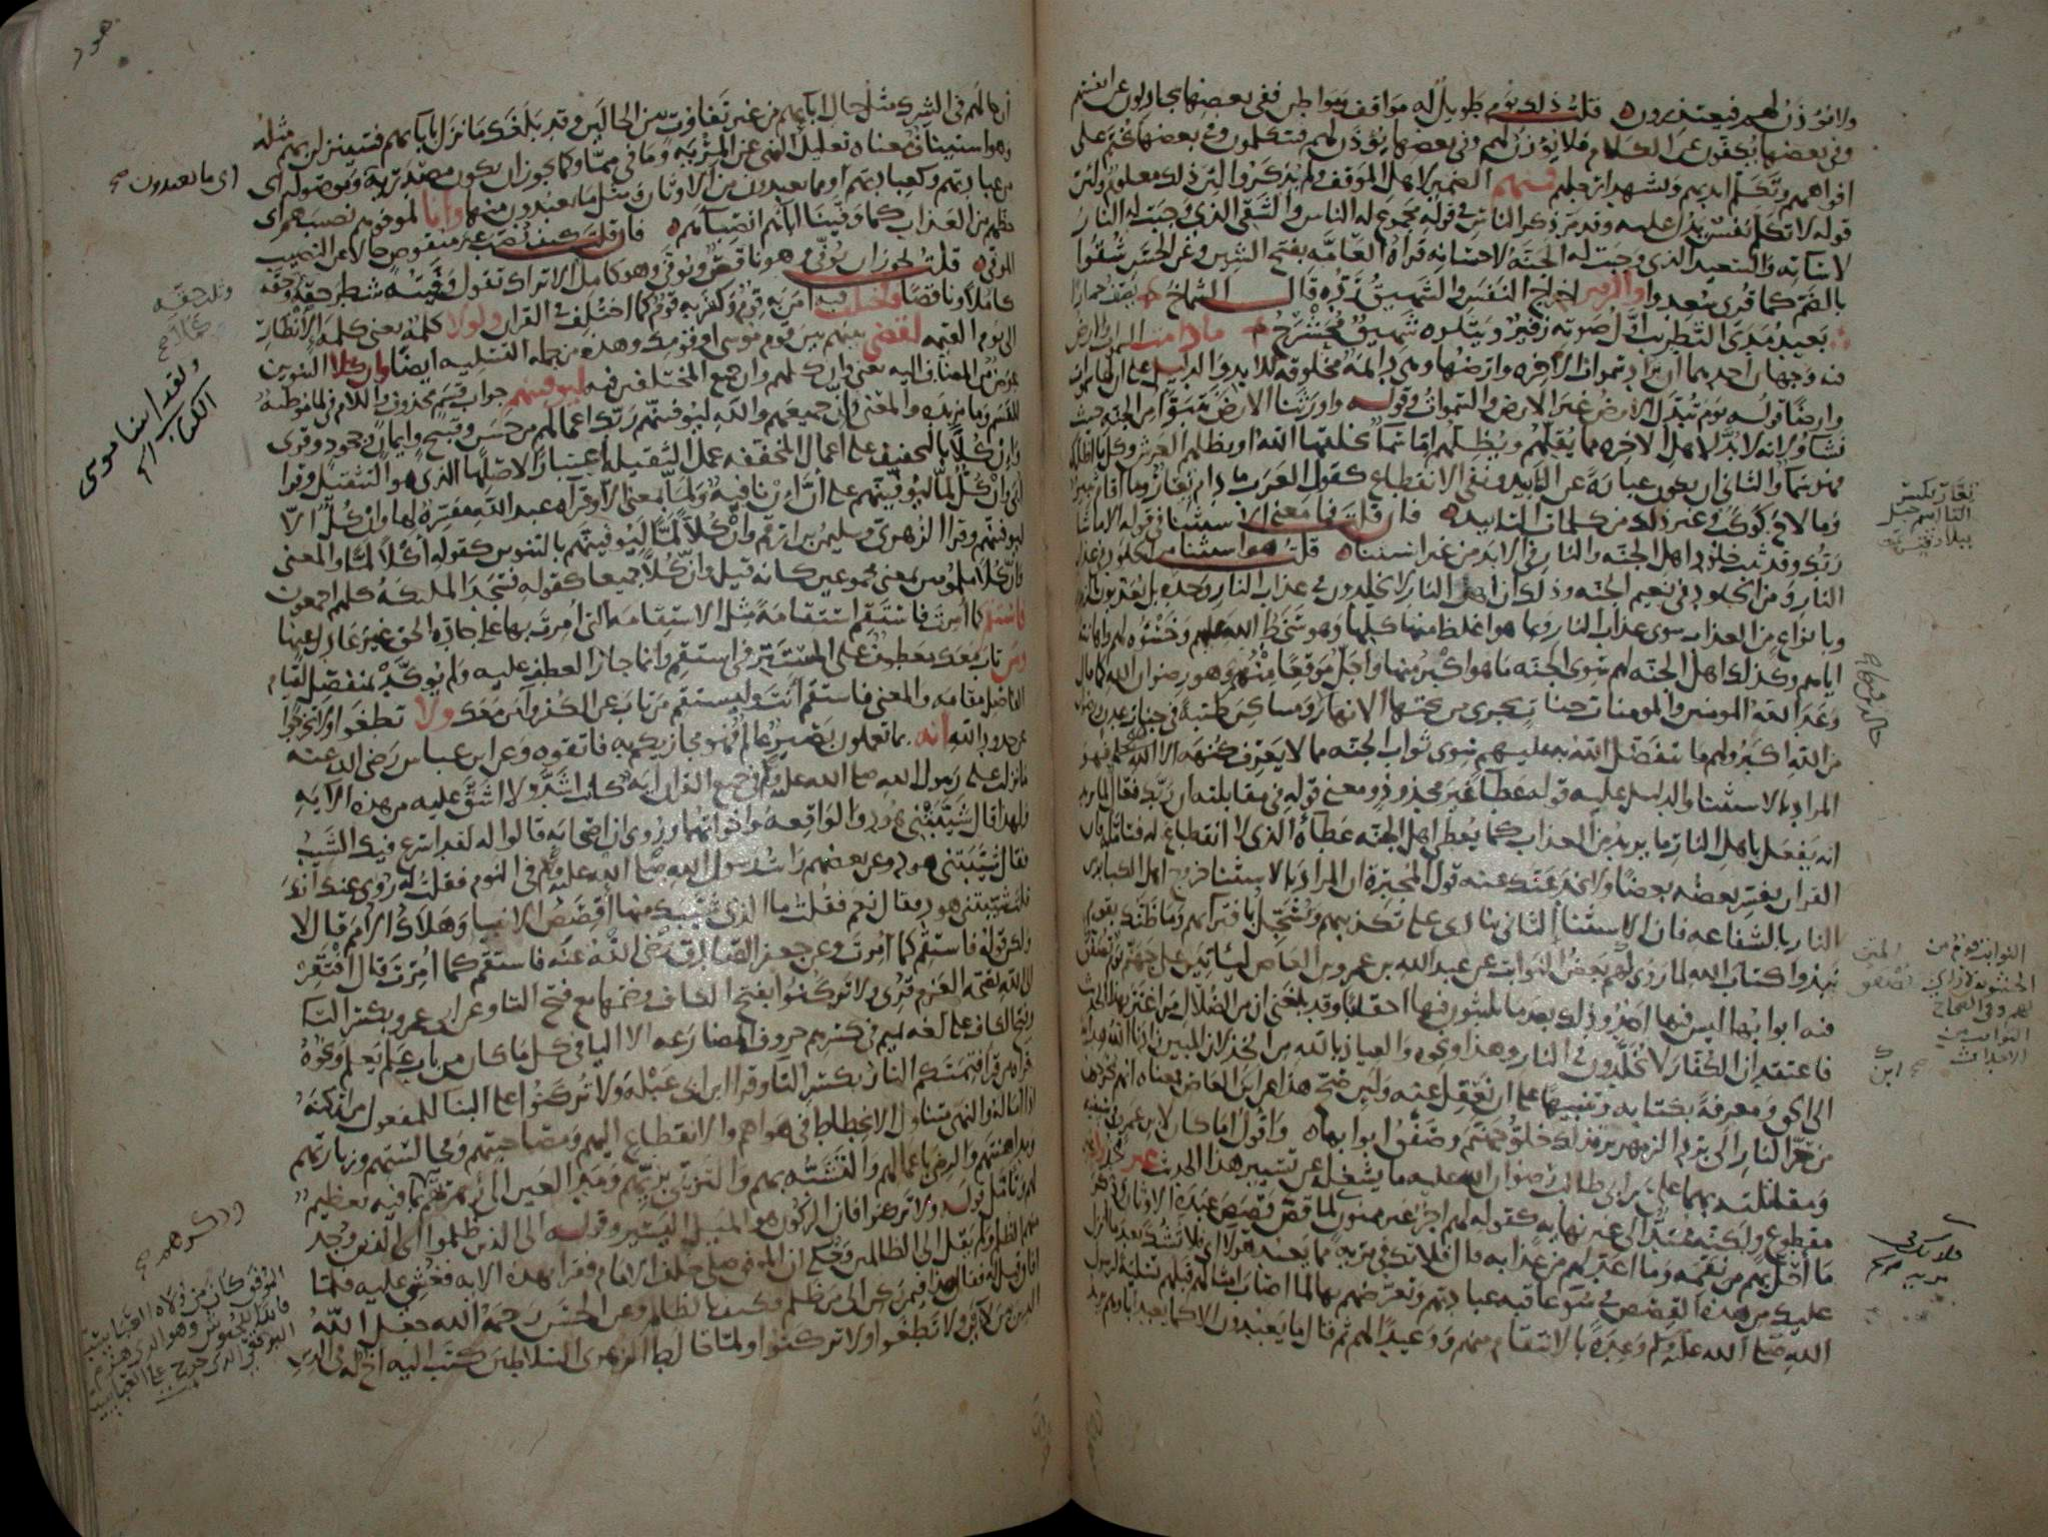 ولا يؤذن لهم فيعتذرون قلت ذلك يوم طويل له مواقف ومواطن ففي بعضها يجادلون عن انفسهم
وفي بعضها يكفون عن الكلام فلا يؤذن لهم وفي بعضها يؤذن لهم فيتكلمون وفي بعضها يختم على
افواههم وتتكلم ايديهم وتشهد ارجلهم فمنهم الضمير لاهل الموقف ولم يذكروا لان ذلك معلوم ولان
قوله لا تكلم نفس يدل عليه وقد مر ذكر الناس في قوله مجموع له الناس والشقي الذي وجبت له النار
لاساته والسعيد الذي وجبت له الجنة لاحسانه قراة العامة بفتح الشين وعن الحسن شقوا
بالضم كما قرى سعدوا والزفير اخراج النفس والشهيق رده قال الشماخ
بعيد مدى التطريب اول صوته زفير ويتلوه شهيق محشرج ما دامت السموات والارض
فيه وجهان احدهما ان يراد سموات الاخره وارضها وهي دائمة مخلوقة للابد والدليل على ان لها سموات
وارضا قوله يوم تبدل الارض غير الارض والسموات وقوله واورثنا الارض نتبوا من الجنة حيث
نشاء ولانه لا بد لاهل الاخره مما يقلهم ويظلهم اما سما يخلقها الله او يظلهم العرش وكل ما اظلك
فهو سما والثاني ان يكون عبارة عن التأبيد ونفي الانقطاع كقول العرب ما دام تعار وما اقام ثبير
وما لاح كوكب وغير ذلك من كلمات التابيد فان قلت فما معنى الاستثنا في قوله الا ما شا
ربك وقد ثبت خلود اهل الجنة والنار في الابد من غير استثنا قلت هو استثنا من الخلود في عذاب
النار ومن الخلود في نعيم الجنة وذلك ان اهل النار لا يخلدون في عذاب النار وحده بل يعذبون بالزمهرير
وبانواع من العذاب سوى عذاب النار وبما هو اغلظ منها كلها وهو سخط الله عليهم وخسؤه لهم واهانته
اياهم وكذلك اهل الجنة لهم سوى الجنة ما هو اكبر منها واجل موقعا منهم وهو رضوان الله كما قال
وعد الله المومنين والمومنات جنات تجري من تحتها الانهار ومساكن طيبة في جنات عدن ورضوان
من الله اكبر ولهم ما يتفضل الله به عليهم سوى ثواب الجنة مما لا يعرف كنهه الا الله فهو
المراد بالاستثنا والدليل عليه قوله عطاء غير مجذوذ ومعنى قوله في مقابلته ان ربك فعال لما يريد
انه يفعل باهل النار ما يريد من العذاب كما يعطي اهل الجنة عطاءه الذي لا انقطاع له فتامله فان
القران يفسر بعضه بعضا ولا يخدعنك عنه قول المجبرة ان المراد بالاستثنا خروج اهل الكبائر من
النار بالشفاعه فان الاستثنا الثاني ينادي على تكذيبهم ويسجل بافترائهم وما ظنك بقوم
نبذوا كتاب الله لما روى لهم بعض النوابت عن عبد الله بن عمرو بن العاص لياتين على جهنم يوم تصفق
فيه ابوابها ليس فيها احد وذلك بعد ما يلبثون فيها احقابا وقد بلغني ان من الضلال من اغتر بهذا الحديث
فاعتقد ان الكفار لا يخلدون في النار وهذا ونحوه والعياذ بالله من الخذلان المبين زادنا الله هداية
الى الحق ومعرفة بكتابه وتنبيها على ان نعقل عنه ولئن صح هذا عن ابن العاص فمعناه انهم يخرجون
من حر النار الى برد الزمهرير فذلك خلو جهنم وصفق ابوابها واقول اما كان لابن عمرو في سيفيه
ومقاتلته بهما علي بن ابي طالب رضوان الله عليه ما يشغله عن تسيير هذا الحديث غير مجذوذ
مقطوع ولكنه ممتد الى غير نهايه كقوله لهم اجر غير ممنون لما قص قصص عبدة الاوثان وذكر
ما احل بهم من نقمه وما اعد لهم من عذابه قال فلا تك في مريه مما يعبد هولاء اي فلا تشك بعد ما انزل
عليك من هذه القصص في سوء عاقبة عبادتهم وتعرضهم بها لما اصاب امثالهم قبلهم تسلية لرسول
الله صلى الله عليه وسلم وعدة بالانتقام منهم ووعيدا لهم ثم قال ما يعبدون الا كما يعبد اباؤهم يريد
تعار بكسر
التا اسم جبل
ببلاد قيس
خالدين فيها
النوابت قوم من
الحشويه
فلا تك في
مريه
هود
ان حالهم في الشرك مثل حال ابائهم من غير تفاوت بين الحالين وقد بلغك ما نزل بابائهم فسينزلن بهم مثله
وهو استيناف معناه تعليل النهي عن المريه وما في مما وكما يجوز ان يكون مصدرية وموصوله اي
من عبادتهم وكعبادتهم او مما يعبدون من الاوثان ومثل ما يعبدون منها وانا لموفوهم نصيبهم اي
حظهم من العذاب كما وفينا اباءهم انصباءهم فان قلت كيف نصب غير منقوص حالا عن النصيب
الموفى قلت يجوز ان يوفى وهو ناقص ويوفى وهو كامل الا تراك تقول وفيته شطر حقه
كاملا وناقصا فاختلف فيه امن به قوم وكفر به قوم كما اختلف في القران ولولا كلمة يعني كلمة الانظار
الى يوم القيمه لقضي بينهم بين قوم موسى او قومك وهذه من جملة التسليه ايضا وان كلا التنوين
عوض من المضاف اليه يعني وان كلهم وان جميع المختلفين فيه ليوفينهم جواب قسم محذوف واللام في لما موطئة
للقسم وما مزيدة والمعنى وان جميعهم والله ليوفينهم ربك اعمالهم من حسن وقبيح وايمان وجحود وقرى
وان كلا بالتخفيف على اعمال المخففه عمل الثقيله اعتبارا لاصلها الذي هو التثقيل وقرا
ابي وان كل لما ليوفينهم على ان ان نافية ولما بمعنى الا وقراة عبد الله مفسرة لها وان كل الا
ليوفينهم وقرا الزهري وسليمن بن ارقم وان كلا لما ليوفينهم بالتنوين كقوله اكلا لما والمعنى
وان كلا ملمومين بمعنى مجموعين كانه قيل وان كلا جميعا كقوله فسجد الملئكة كلهم اجمعون
فاستقم كما امرت فاستقم استقامة مثل الاستقامة التي امرت بها على جادة الحق غير عادل عنها
ومن تاب معك معطوف على المستتر في استقم وانما جاز العطف عليه ولم يؤكد بمنفصل لقيام
الفاصل مقامه والمعنى فاستقم انت وليستقم من تاب عن الكفر وامن معك ولا تطغوا ولا تخرجوا
عن حدود الله انه بما تعملون بصير عالم فهو مجازيكم به فاتقوه وعن ابن عباس رضي الله عنه
ما نزلت على رسول الله صلى الله عليه وسلم في جميع القران اية كانت اشد ولا اشق عليه من هذه الايه
ولهذا قال شيبتني هود والواقعه واخواتهما وروي ان اصحابه قالوا له لقد اسرع فيك الشيب
فقال شيبتني هود وعن بعضهم رايت رسول الله صلى الله عليه وسلم في النوم فقلت له روي عنك انك
قلت شيبتني هود فقال نعم فقلت ما الذي شيبك منها اقصص الانبيا وهلاك الامم قال لا
ولكن قوله فاستقم كما امرت وعن جعفر الصادق رضي الله عنه فاستقم كما امرت قال افتقر
الى الله بصحة العزم قرى ولا تركنوا بفتح الكاف وضمها مع فتح التا وعن ابي عمرو بكسر التا
وفتح الكاف على لغة تميم في كسرهم حروف المضارعه الا اليا في كل ما كان من باب علم يعلم ونحوه
قراة من قرا فتمسكم النار بكسر التا وقرا ابن ابي عبلة ولا تركنوا على البنا للمفعول من اركنه
اذا اماله والنهي متناول الانحطاط في هواهم والانقطاع اليهم ومصاحبتهم ومجالستهم وزيارتهم
ومداهنتهم والرضى باعمالهم والتشبه بهم والتزيي بزيهم ومد العين الى زهرتهم بما فيه تعظيم
لهم وتامل قوله ولا تركنوا فان الركون هو الميل اليسير وقوله الى الذين ظلموا اي الى الذين وجد
منهم الظلم ولم يقل الى الظالمين وحكي ان الموفق صلى خلف الامام فقرا بهذه الايه فغشي عليه فلما
افاق قيل له فقال هذا فيمن ركن الى من ظلم فكيف بالظالم وعن الحسن رحمه الله جعل الله
الدين بين لاءين ولا تطغوا ولا تركنوا ولما خالط الزهري السلاطين كتب اليه اخ له في الدين
اي ما يعبدون صح
ولقد اتينا موسى
الكتاب
الموفق كان من ولاة العباسية